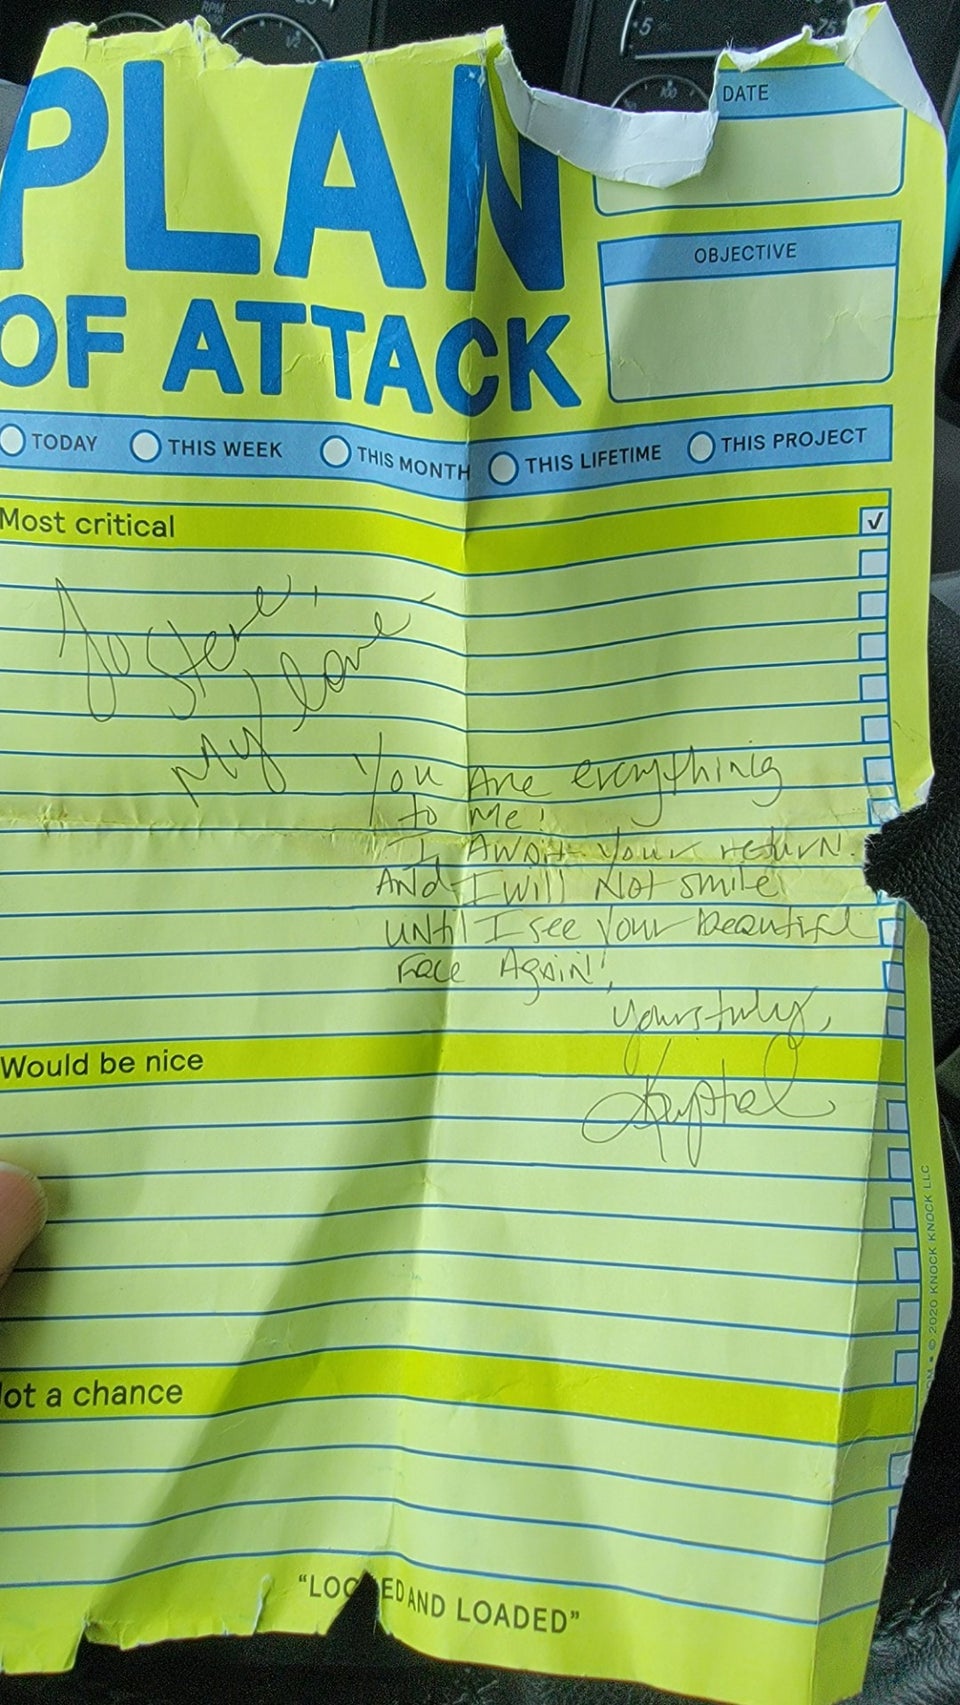 PLAN
OF ATTACK
DATE
OBJECTIVE
TODAY THIS WEEK THIS MONTH THIS LIFETIME THIS PROJECT
Most critical
To Steve,
My love
You Are everything
to Me!
I Await your return.
ANd I will Not smile
UNtil I see your beautiful
Face Again!,
yours truly,
Krystal
Would be nice
ot a chance
"LOC ED AND LOADED"
© 2020 KNOCK KNOCK LLC
RPM
1/2
5
75